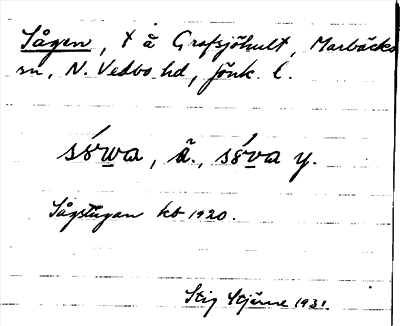 Sågen, † å Grafsjöhult, Marbäcks
sn, N. Vedbo hd, Jönk. l.
só̤wa, ä., só̤va y.
Sågstugan kb 1920.
Stig Stjerne 1931.